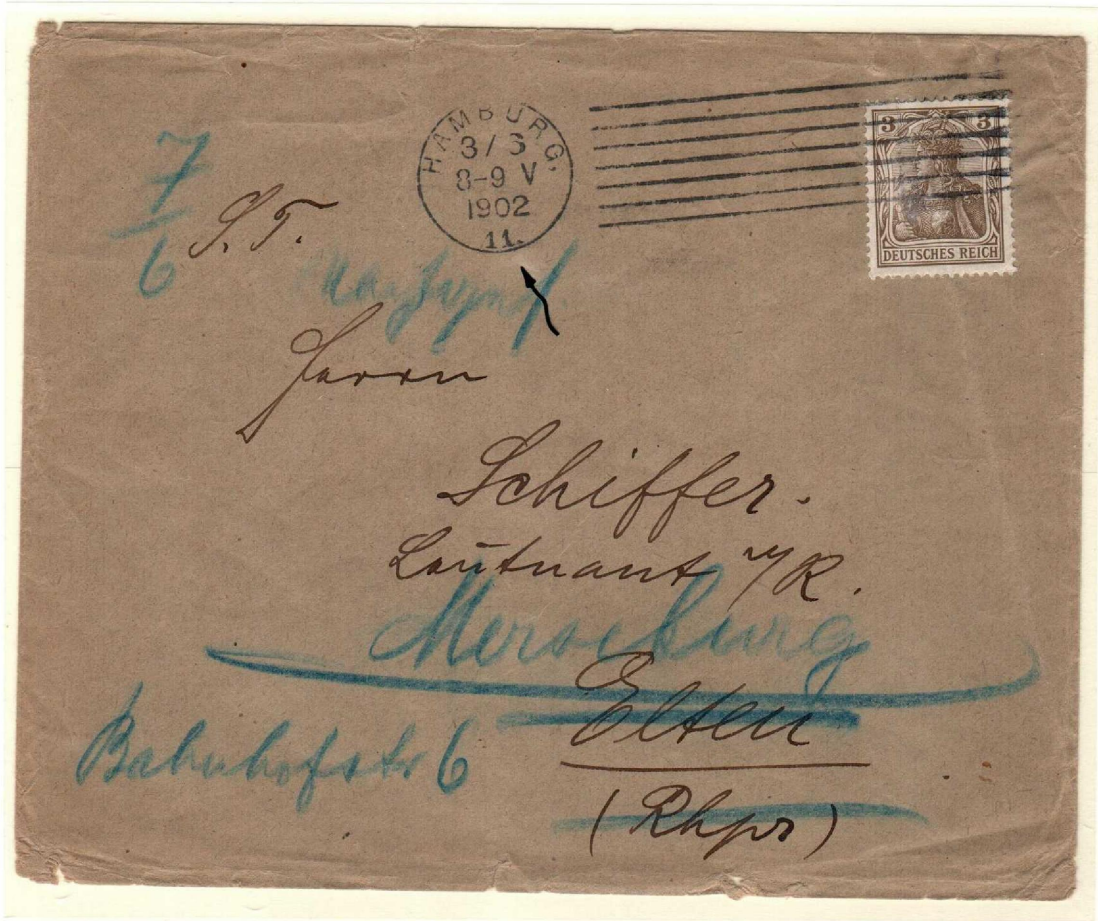 HAMBURG.
3/6
8-9 V
1902
11.
3 3
DEUTSCHES REICH
7/6
S. T.
Herrn
Schiffer.
Leutnant
Merseburg
Elten
Bahnhofstr 6
(Rhpr)